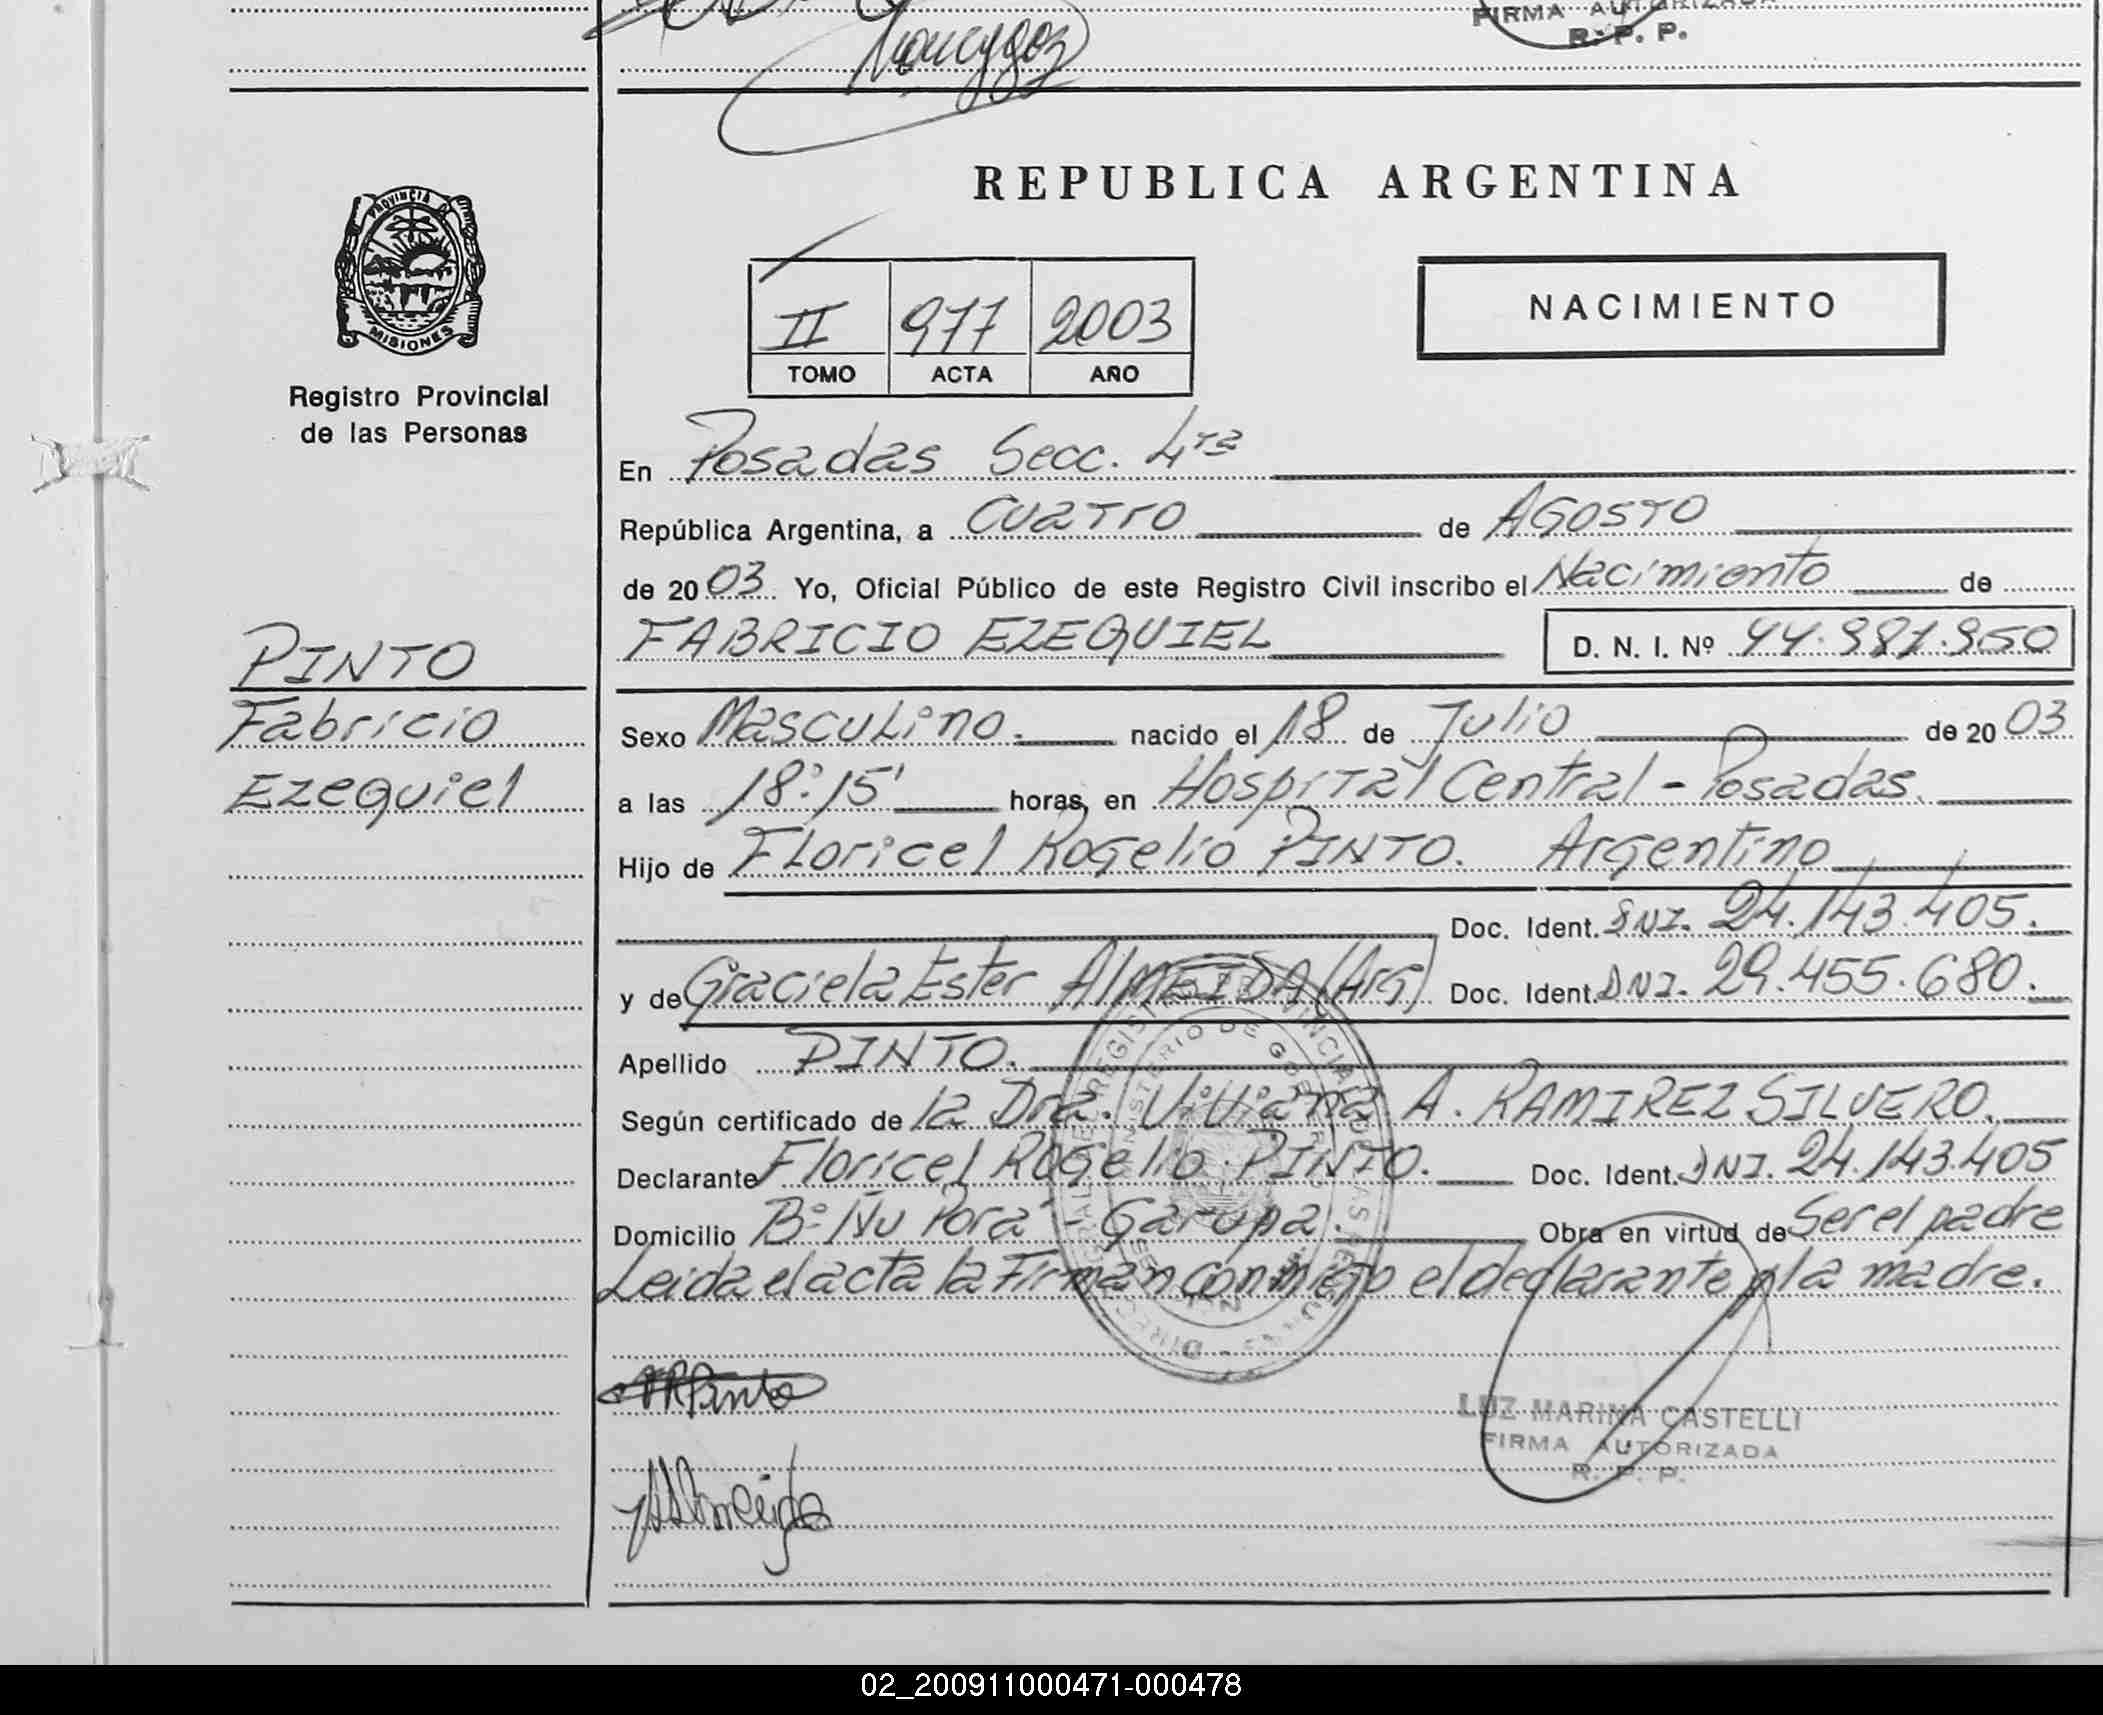 FIRMA AUTORIZADA
R. P. P.
REPUBLICA ARGENTINA
PROVINCIA D
MISIONES
Registro Provincial
de las Personas
II 977 2003
TOMO ACTA AÑO
NACIMIENTO
En Posadas Secc. 4ta
República Argentina, a Cuatro de Agosto
de 2003. Yo, Oficial Público de este Registro Civil inscribo el Nacimiento de
FABRICIO EZEQUIEL D. N. I. Nº 44.981.950
PINTO
Fabricio
Ezequiel
Sexo Masculino. nacido el 18 de Julio de 2003
a las 18:15' horas, en Hospital Central - Posadas.
Hijo de Floricel Rogelio PINTO. Argentino
Doc. Ident. DNI. 24.143.405.
y de Graciela Ester ALMEIDA (Arg) Doc. Ident. DNI. 29.455.680.
Apellido PINTO.
Según certificado de la Dra. Viviana A. RAMIREZ SILVERO.
Declarante Floricel Rogelio PINTO. Doc. Ident. DNI. 24.143.405
Domicilio Bº Ñu Porá - Garupa. Obra en virtud de Ser el padre
Leida el acta la Firman conmigo el declarante y la madre.
LUZ MARINA CASTELLI
FIRMA AUTORIZADA
R. P. P.
02_200911000471-000478